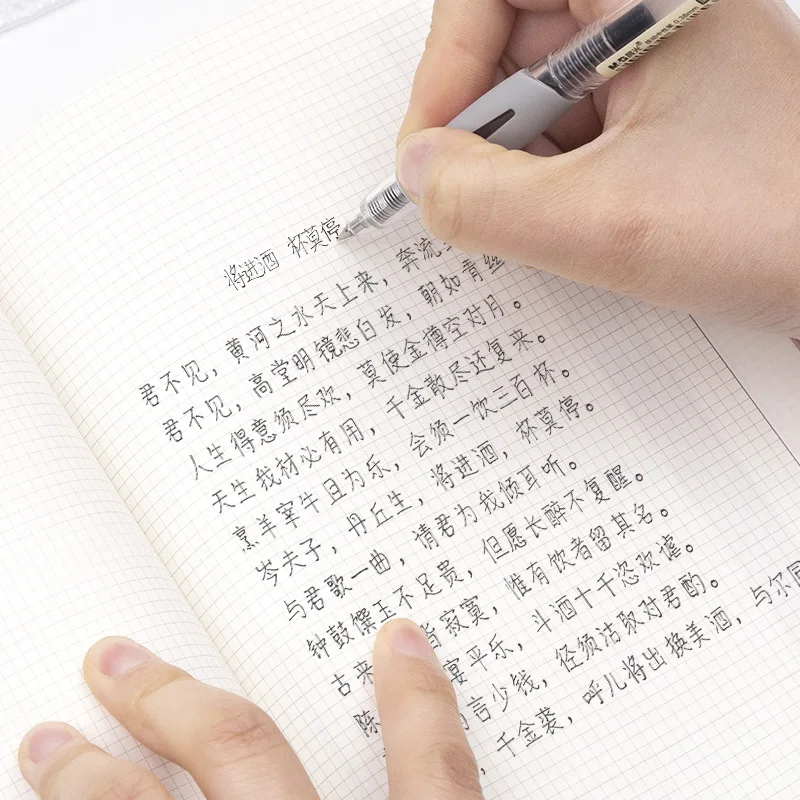 M&G晨光 0.38mm
将进酒 杯莫停
君不见，黄河之水天上来，奔流
君不见，高堂明镜悲白发，朝如青丝
人生得意须尽欢，莫使金樽空对月。
天生我材必有用，千金散尽还复来。
烹羊宰牛且为乐，会须一饮三百杯。
岑夫子，丹丘生，将进酒，杯莫停。
与君歌一曲，请君为我倾耳听。
钟鼓馔玉不足贵，但愿长醉不复醒。
古来 皆寂寞，惟有饮者留其名。
陈 宴平乐，斗酒十千恣欢虐。
言少钱，径须沽取对君酌。
，千金裘，呼儿将出换美酒，与尔同